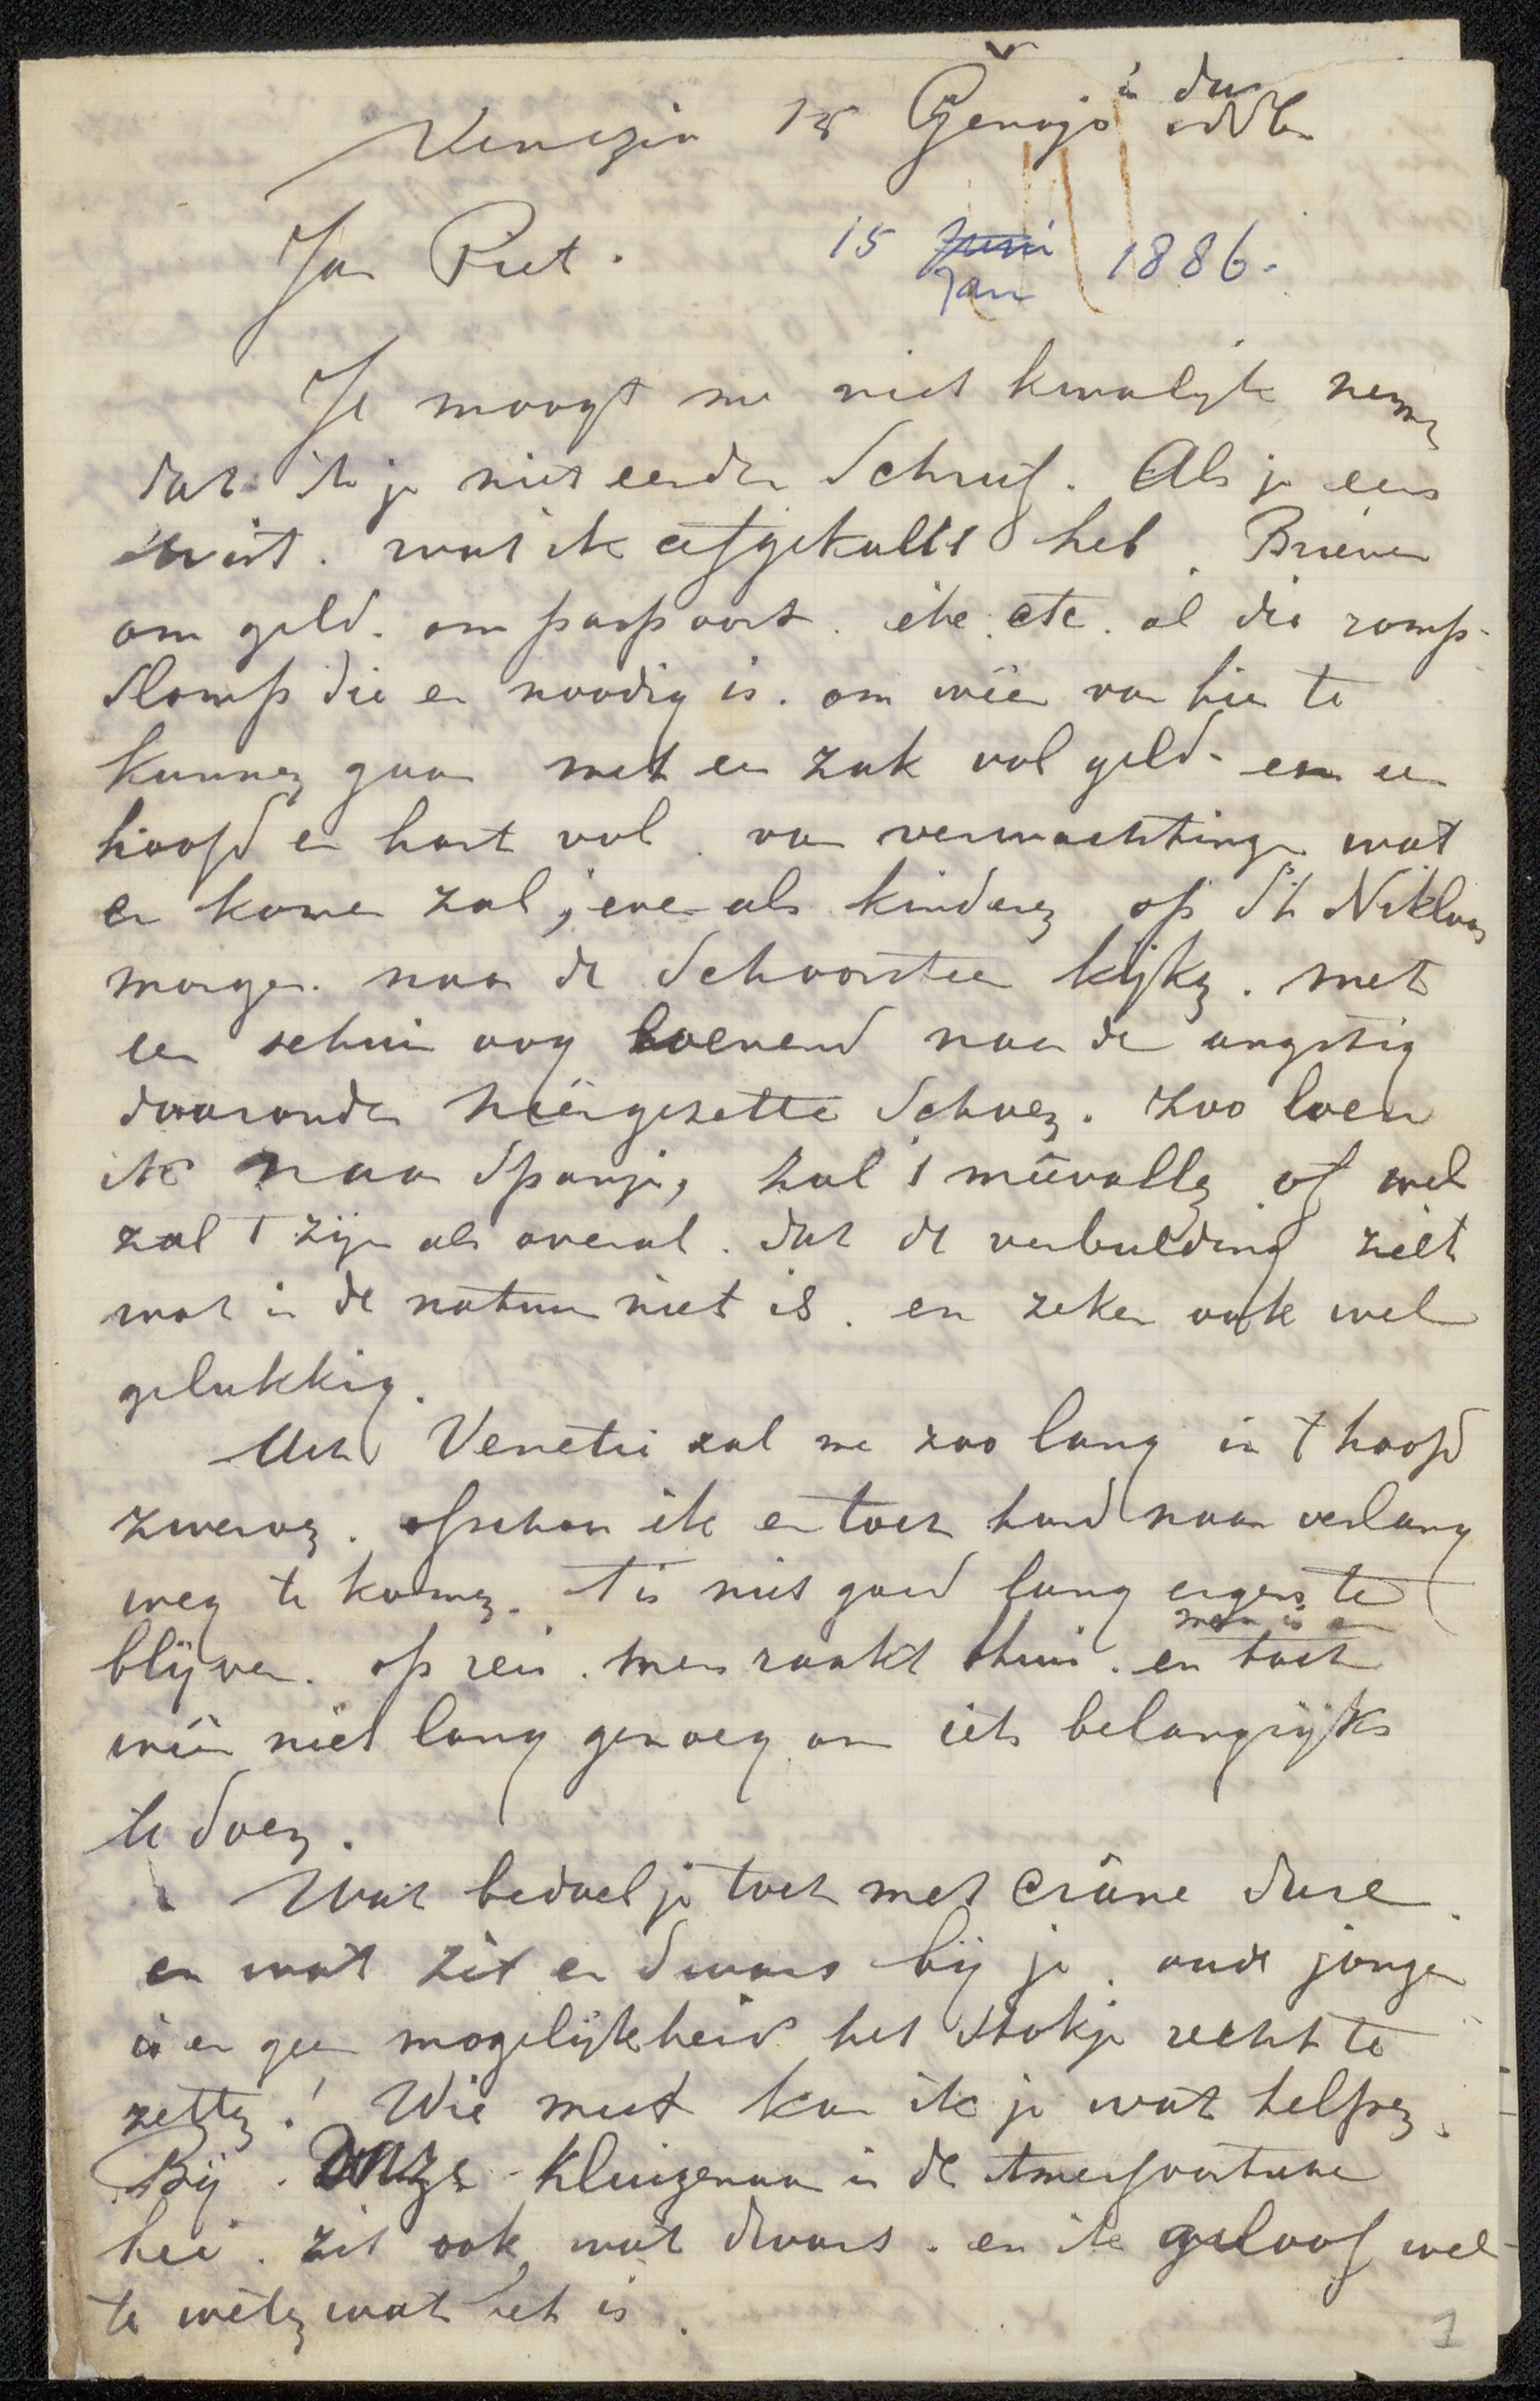 Venezia 15 Genajo
Jan Piet.
15 Juni 1886.
Jan
Je moogt me niet kwalijk nemen
dat ik je niet eerder schreef. Als je eens
wist. wat ik afgekalkt heb. Brieven
om geld. om paspoort. etc. etc. al die romp-
slomp die er noodig is. om wéer van hier te
kunnen gaan met een zak vol geld en een
hoofd en hart vol van verwachtingen wat
er komen zal, evenals kinderen op St. Niklaas
morgen. naar de schoorsteen kijken. met
een schuin oog loerend naar de angstig
daaronder héérgezette schoen. zoo loer
ik naar Spanje, zal 't méevallen of wel
zal 't zijn als overal. dat de verbeelding ziet
wat in de natuur niet is. en zeker ook wel
gelukkig.
Uch Venetie zal me zoo lang in 't hoofd
zwerven. ofschoon ik er toch hard naar verlang
weg te komen. 't is niet goed lang ergens te
blijven. op reis. men raakt thuis. en toch
men is er
wéer niet lang genoeg om iets belangrijks
te doen.
Wat bedoel je toch met crâne
en wat zit er dwars bij je. oude jongen
is er geen mogelijkheid het stokje recht te
zetten! Wie weet kan ik je wat helpen.
Bij. Onze Kluizenaar in de Amersfoortsche
hei. zit ook wat dwars. en ik geloof wel
te wéten wat het is.
1